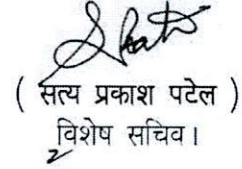 ( सत्य प्रकाश पटेल )
विशेष सचिव।
2